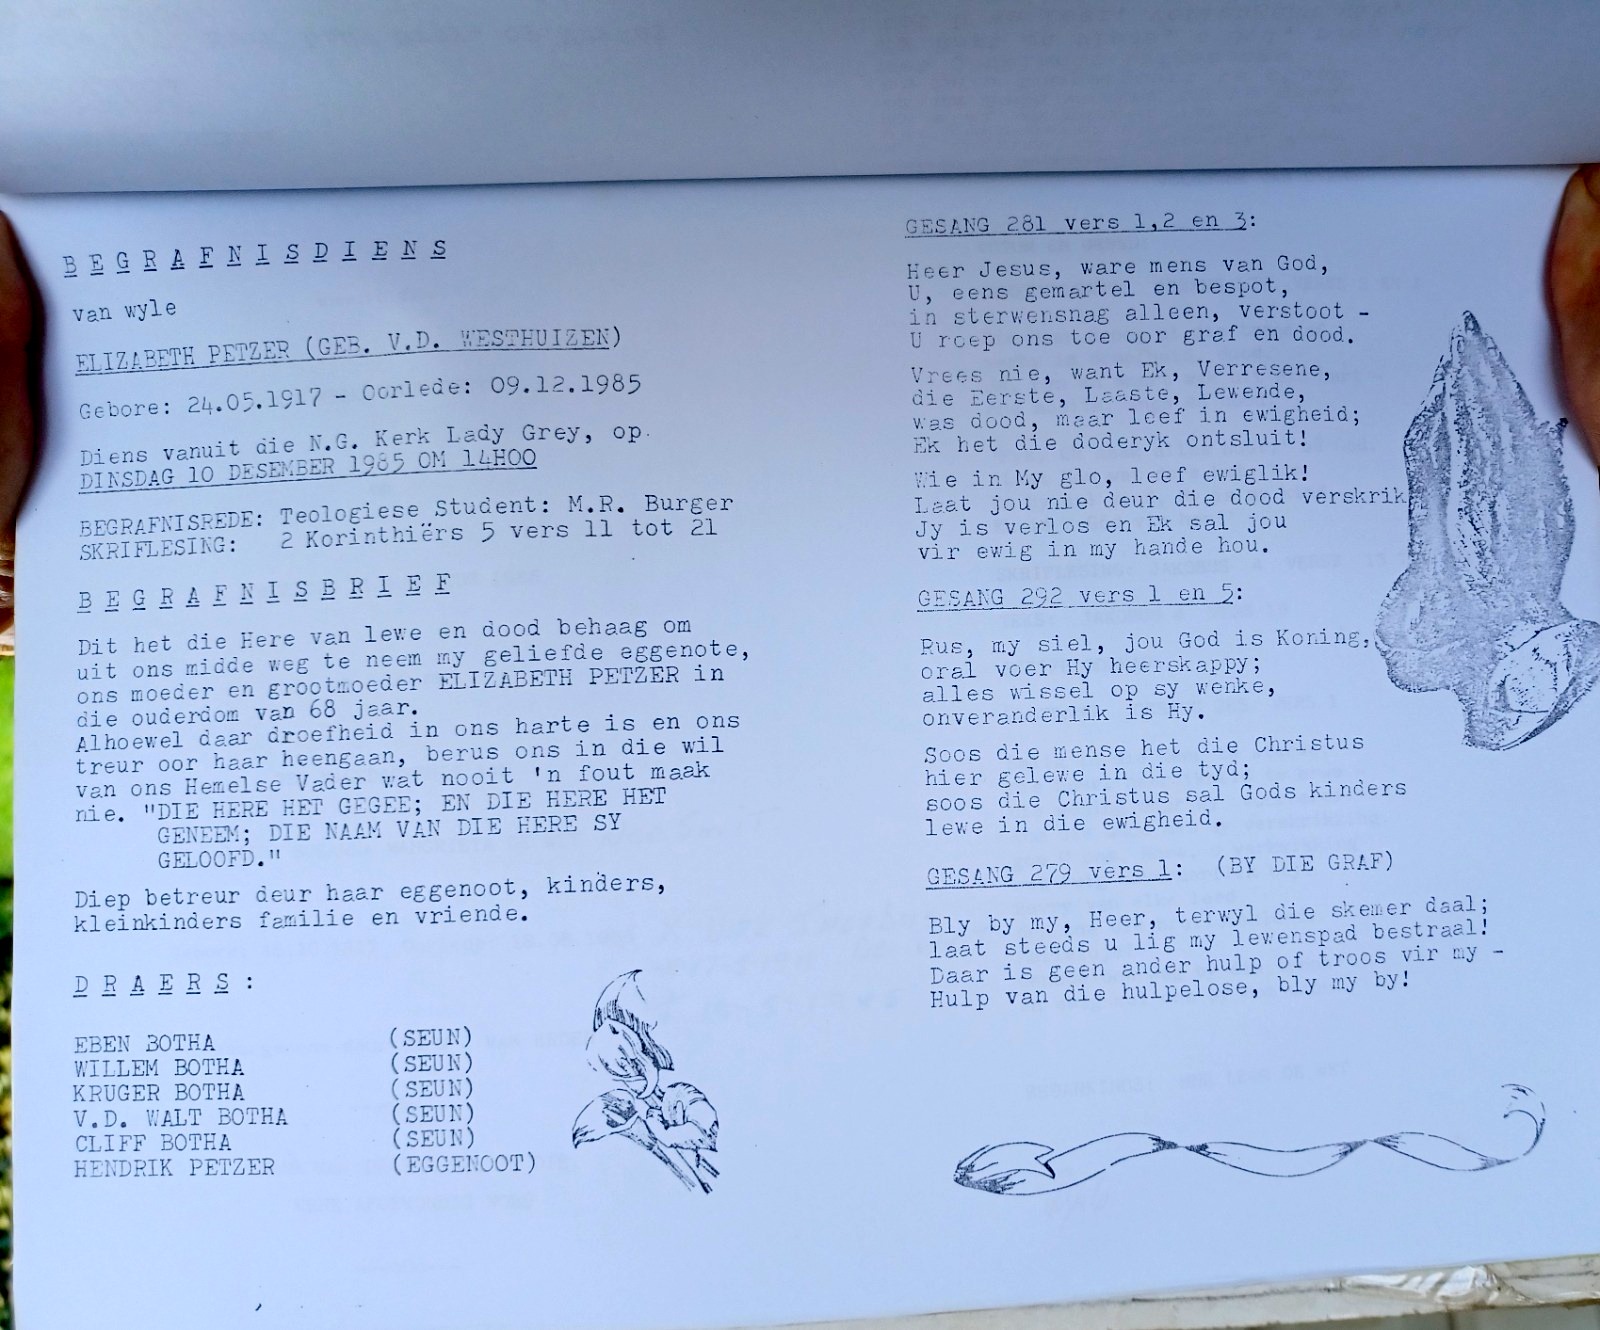 BEGRAFNISDIENS
van wyle
ELIZABETH PETZER (GEB. V.D. WESTHUIZEN)
Gebore: 24.05.1917 - Oorlede: 09.12.1985
Diens vanuit die N.G. Kerk Lady Grey, op
DINSDAG 10 DESEMBER 1985 OM 14HOO
BEGRAFNISREDE: Teologiese Student: M.R. Burger
SKRIFLESING: 2 Korinthiërs 5 vers 11 tot 21
BEGRAFNISBRIEF
Dit het die Here van lewe en dood behaag om
uit ons midde weg te neem my geliefde eggenote,
ons moeder en grootmoeder ELIZABETH PETZER in
die ouderdom van 68 jaar.
Alhoewel daar droefheid in ons harte is en ons
treur oor haar heengaan, berus ons in die wil
van ons Hemelse Vader wat nooit 'n fout maak
nie. "DIE HERE HET GEGEE; EN DIE HERE HET
GENEEM; DIE NAAM VAN DIE HERE SY
GELOOFD."
Diep betreur deur haar eggenoot, kinders,
kleinkinders familie en vriende.
DRAERS:
EBEN BOTHA (SEUN)
WILLEM BOTHA (SEUN)
KRUGER BOTHA (SEUN)
V.D. WALT BOTHA (SEUN)
CLIFF BOTHA (SEUN)
HENDRIK PETZER (EGGENOOT)
GESANG 281 vers 1,2 en 3:
Heer Jesus, ware mens van God,
U, eens gemartel en bespot,
in sterwensnag alleen, verstoot -
U roep ons toe oor graf en dood.
Vrees nie, want Ek, Verresene,
die Eerste, Laaste, Lewende,
was dood, maar leef in ewigheid;
Ek het die doderyk ontsluit!
Wie in My glo, leef ewiglik!
Laat jou nie deur die dood verskrik
Jy is verlos en Ek sal jou
vir ewig in my hande hou.
GESANG 292 vers 1 en 5:
Rus, my siel, jou God is Koning,
oral voer Hy heerskappy;
alles wissel op sy wenke,
onveranderlik is Hy.
Soos die mense het die Christus
hier gelewe in die tyd;
soos die Christus sal Gods kinders
lewe in die ewigheid.
GESANG 279 vers 1: (BY DIE GRAF)
Bly by my, Heer, terwyl die skemer daal;
laat steeds u lig my lewenspad bestraal!
Daar is geen ander hulp of troos vir my -
Hulp van die hulpelose, bly my by!